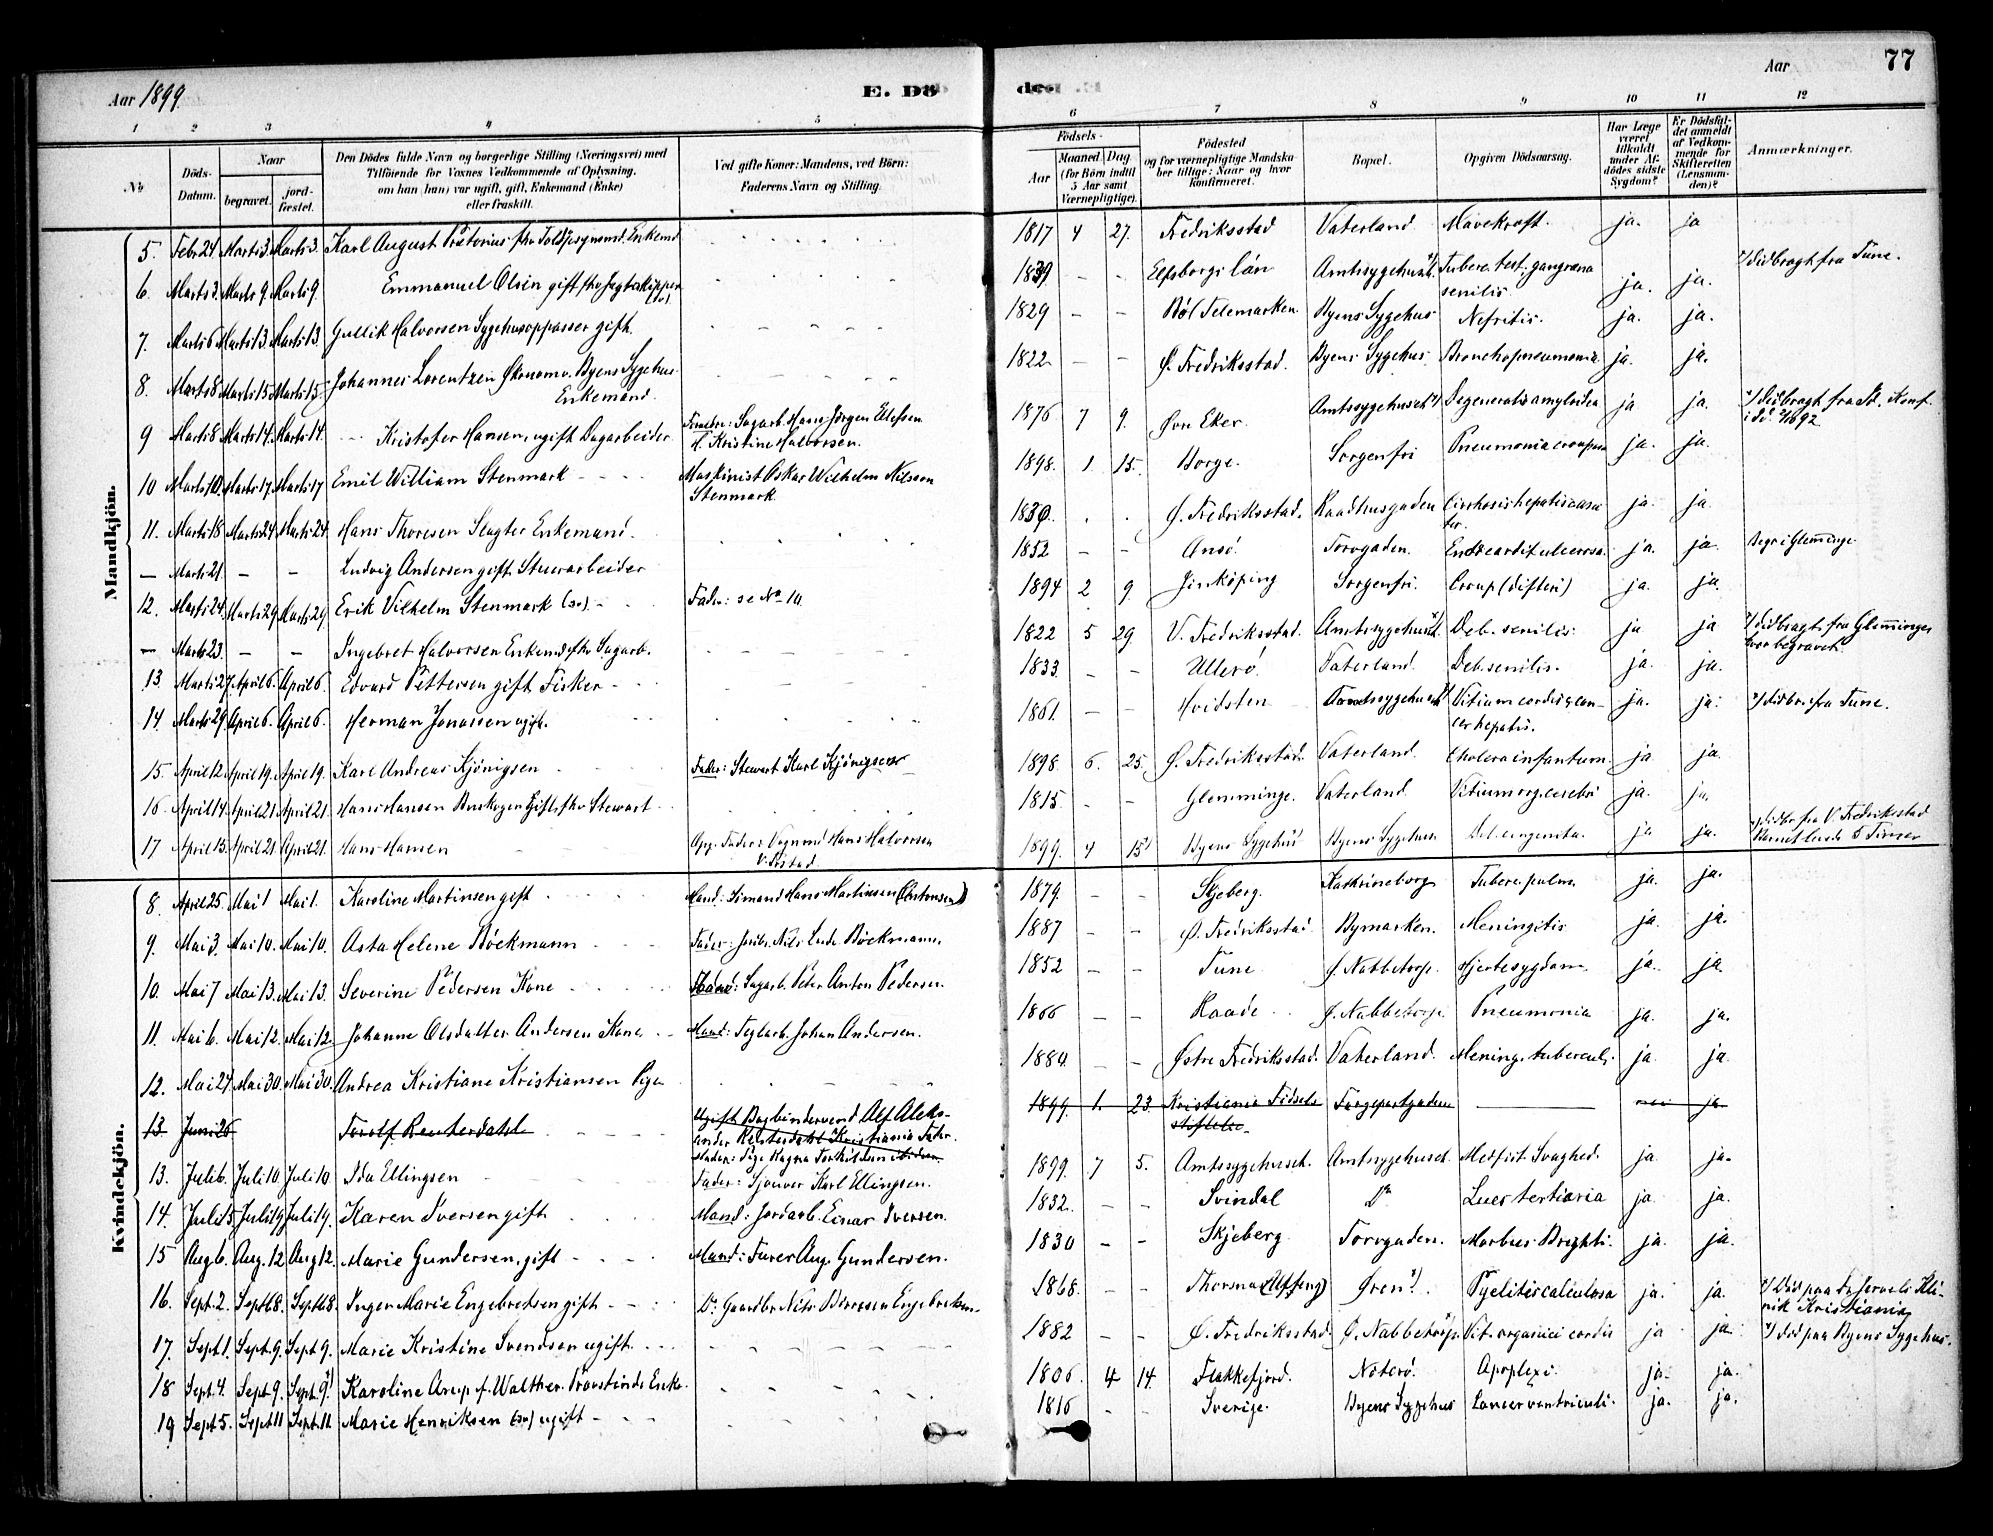 Aar 1899.
E. Dö
de. 
Aar
77
1 2 3 4 5 6 7 8 9 10 11 12
№
Döds-Datum.
Naar
begravet.
jord-fæstet.
Den Dödes fulde Navn og borgerlige Stilling (Næringsvei) med
Tilföiende for Voxnes Vedkommende af Oplysning,
om han (hun) var ugift, gift, Enkemand (Enke)
eller fraskilt.
Ved gifte Koner: Mandens, ved Börn:
Faderens Navn og Stilling.
Födsels-
Aar
Maaned. Dag.
(for Börn indtil
5 Aar samt
Værnepligtige).
Födested
og for værnepligtige Mandska-
ber tillige: Naar og hvor
konfirmeret.
Bopæl.
Opgiven Dödsaarsag.
Har Læge
været
tilkaldt
under Af-
dödes sidste
Sygdom?
Er Dödsfal-
det anmeldt
af Vedkom-
mende for
Skifteretten
(Lensman-
den)?
Anmærkninger.
Mandkjön.
5. Febr 24 Marts 3. Marts 3. Karl August Prætorius fhv Toldopsynsmd. Enkemd 1817 4 27. Fredriksstad Vaterland. Mavekræft. ja. ja
6. Marts 3. Marts 9. Marts 9. Emmanuel Olsen gift fhv Jagtskipper 1839 - - Elfsborgs län Amtssygehuset Tuberc. test. gangræna senilis ja. ja. 1/ Hidbragt fra Tune.
7. Marts 6 Marts 13. Marts 13. Gullik Halvorsen Sygehusoppasser gift. 1829 - - Bö i Telemarken. Byens Sygehus Nefritis. ja. ja.
8. Marts 8 Marts 15 Marts 15 Johannes Lorentzen Økonom v. Byens Sygehus. Enkemand. 1822 - - Ø. Fredriksstad. Byens Sygehus. Bronchopneumonia ja. ja.
9 Marts 8 Marts 14. Marts 14. Kristofer Hansen, ugift Dagarbeider Forældre: Sagarb. Hans Jørgen Ellefsen H. Kristine Halvorsen. 1876 7 9. Øvre Eker. Amtssygehuset 1/ Degeneratio amyloidea ja ja. 1/ Hidbragt fra
10 Marts 10. Marts 17 Marts 17 Emil William Stenmark Maskinist Oskar Wilhelm Nilsson Stenmark 1898. 1. 15. Borge. Sorgenfri Pneumonia crouposa ja. ja.
11. Marts 18 Marts 24 Marts 24. Hans Thoresen Slagter Enkemand. 1830. Ø. Fredriksstad. Raadhusgaden Cirrhosis hepatis ja. ja.
— Marts 21. - - Ludvig Andersen gift Stuerarbeider 1852 - - Onsö. Torvgaden. Endocardit. ulcerosa. ja. ja. Begr i Glemminge
12. Marts 24. Marts 29 Marts 29 Erik Vilhelm Stenmark (sv). Fader: se No 10. 1894 2 9. Jönköping Sorgenfri. Croup (difteri) ja. ja.
— Marts 23. - - Ingebret Halvorsen Enkemd fhv Sagarb. 1822 5 29 V. Fredriksstad. Amtssygehuset. Deb. senilis. ja ja 1/ Hidbragt fra Glemminge, hvor begravet.
13. Marts 27 April 6. April 6. Edvard Pettersen gift Fisker 1833. - - Ullerö. Vaterland. Deb. senilis. ja. ja.
14. Marts 29. April 6. April 6. Herman Jonassen ugift. 1861. - - Hvidsten Amtssygehuset 1/ Vitium cordis & cancer hepatis. ja. ja. 1/ Hidbr. fra Tune.
15. April 12. April 19. April 19. Karl Andreas Kjönigsen Fader: Stewart Karl Kjönigsen 1898. 6. 25. Ø. Fredriksstad. Vaterland. Cholera infantum. ja ja
16 April 14. April 21 April 21. Hans Hansen Buskogen Gift fhv Stewart 1815 - - Glemminge. Vaterland. Vitium org. cerebri ja. ja.
17 April 15. April 21. April 21. Hans Hansen Opg. Fader: Vognmd Hans Halvorsen 1899. 4 15 Byens Sygehus Byens Sygehus. Deb. congenita. ja ja. 1/ Hidbr fra V. Fredriksstad Barnet levede 5 Timer
Kvindekjön.
8. April 25. Mai 1 Mai 1. Karoline Martinsen gift Mand: Sömand Hans Martinsen (Antonsen) 1879. - - Skjeberg. Katrineborg Tuberc. pulm. ja. ja.
9. Mai 3. Mai 10. Mai 10. Asta Helene Böckmann Fader: Nils Ludv. Böckmann. 1887 - - Ø. Fredriksstad Bymarken. Meningitis ja. ja.
10. Mai 7 Mai 13. Mai 13. Severine Pedersen Kone Mand: Sagarb. Peter Anton Pedersen. 1852 - - Tune. Ø. Nabbetorp. Hjertesygdom. ja. ja.
11. Mai 6. Mai 12. Mai 12. Johanne Olsdatter Andersen Kone Mand: Teglarb. Johan Andersen. 1866 - - Raade Ø. Nabbetorp. Pneumonia ja. ja.
12. Mai 24 Mai 30. Mai 30. Andrea Kristiane Kristiansen Pige 1884. - - Østre Fredriksstad. Vaterland. Mening. tubercul. ja. ja.
13 Juni 26 Torolf Reuterdahl Ugift Bogbindersvend Alf Aleksander Reuterdahl Kristiania Fader. Moder: Pige Ragna Torkildsen ibidem. 1899. 1. 23. Kristiania Födselsstiftelse. Færgeportgaden nei ja
13. Juli 6. Juli 10. Juli 10 Ida Ellingsen Fader: Sjauver Karl Ellingsen. 1899. 7 5. Amtssygehuset. Amtssygehuset. Medfödt Svaghed. ja ja.
14. Juli 15 Juli 19 Juli 19. Karen Iversen gift Mand: Jordarb. Einar Iversen. 1832. - - Svindal Do Lues tertiaria ja ja.
15 Aug 6. Aug. 12 Aug 12. Marie Gundersen, gift Mand: Murer Aug. Gundersen. 1830 - - Skjeberg Torvgaden. Morbus Brightii. ja. ja.
16. Sept. 2. Sept 8. Sept 8. Inger Marie Engebretsen gift Do Gaardbr Nils Borresen Engebretsen. 1868. - - Øren 1/. Pyelitis calculosa ja. ja. 1/ Död paa Dr Jervels Klinik Kristiania
17. Sept 1. Sept. 9. Sept 9. Marie Kristine Svendsen ugift. 1882 - - Ø. Fredriksstad Ø. Nabbetorp. Vit. organici cordis ja ja. 1/ död paa Byens Sygehus.
18 Sept. 4. Sept 9. Sept. 9 1) Karoline Arup f. Walther. Provstinde Enke. 1806. 4 14. Flekkefjord. Noterö. Apoplexi. ja. ja.
19 Sept 5. Sept 11 Sept. 11. Marie Henriksen (sv) ugift 1816 - - Sverige. Byens Sygehus Cancer ventriculi. ja. ja.